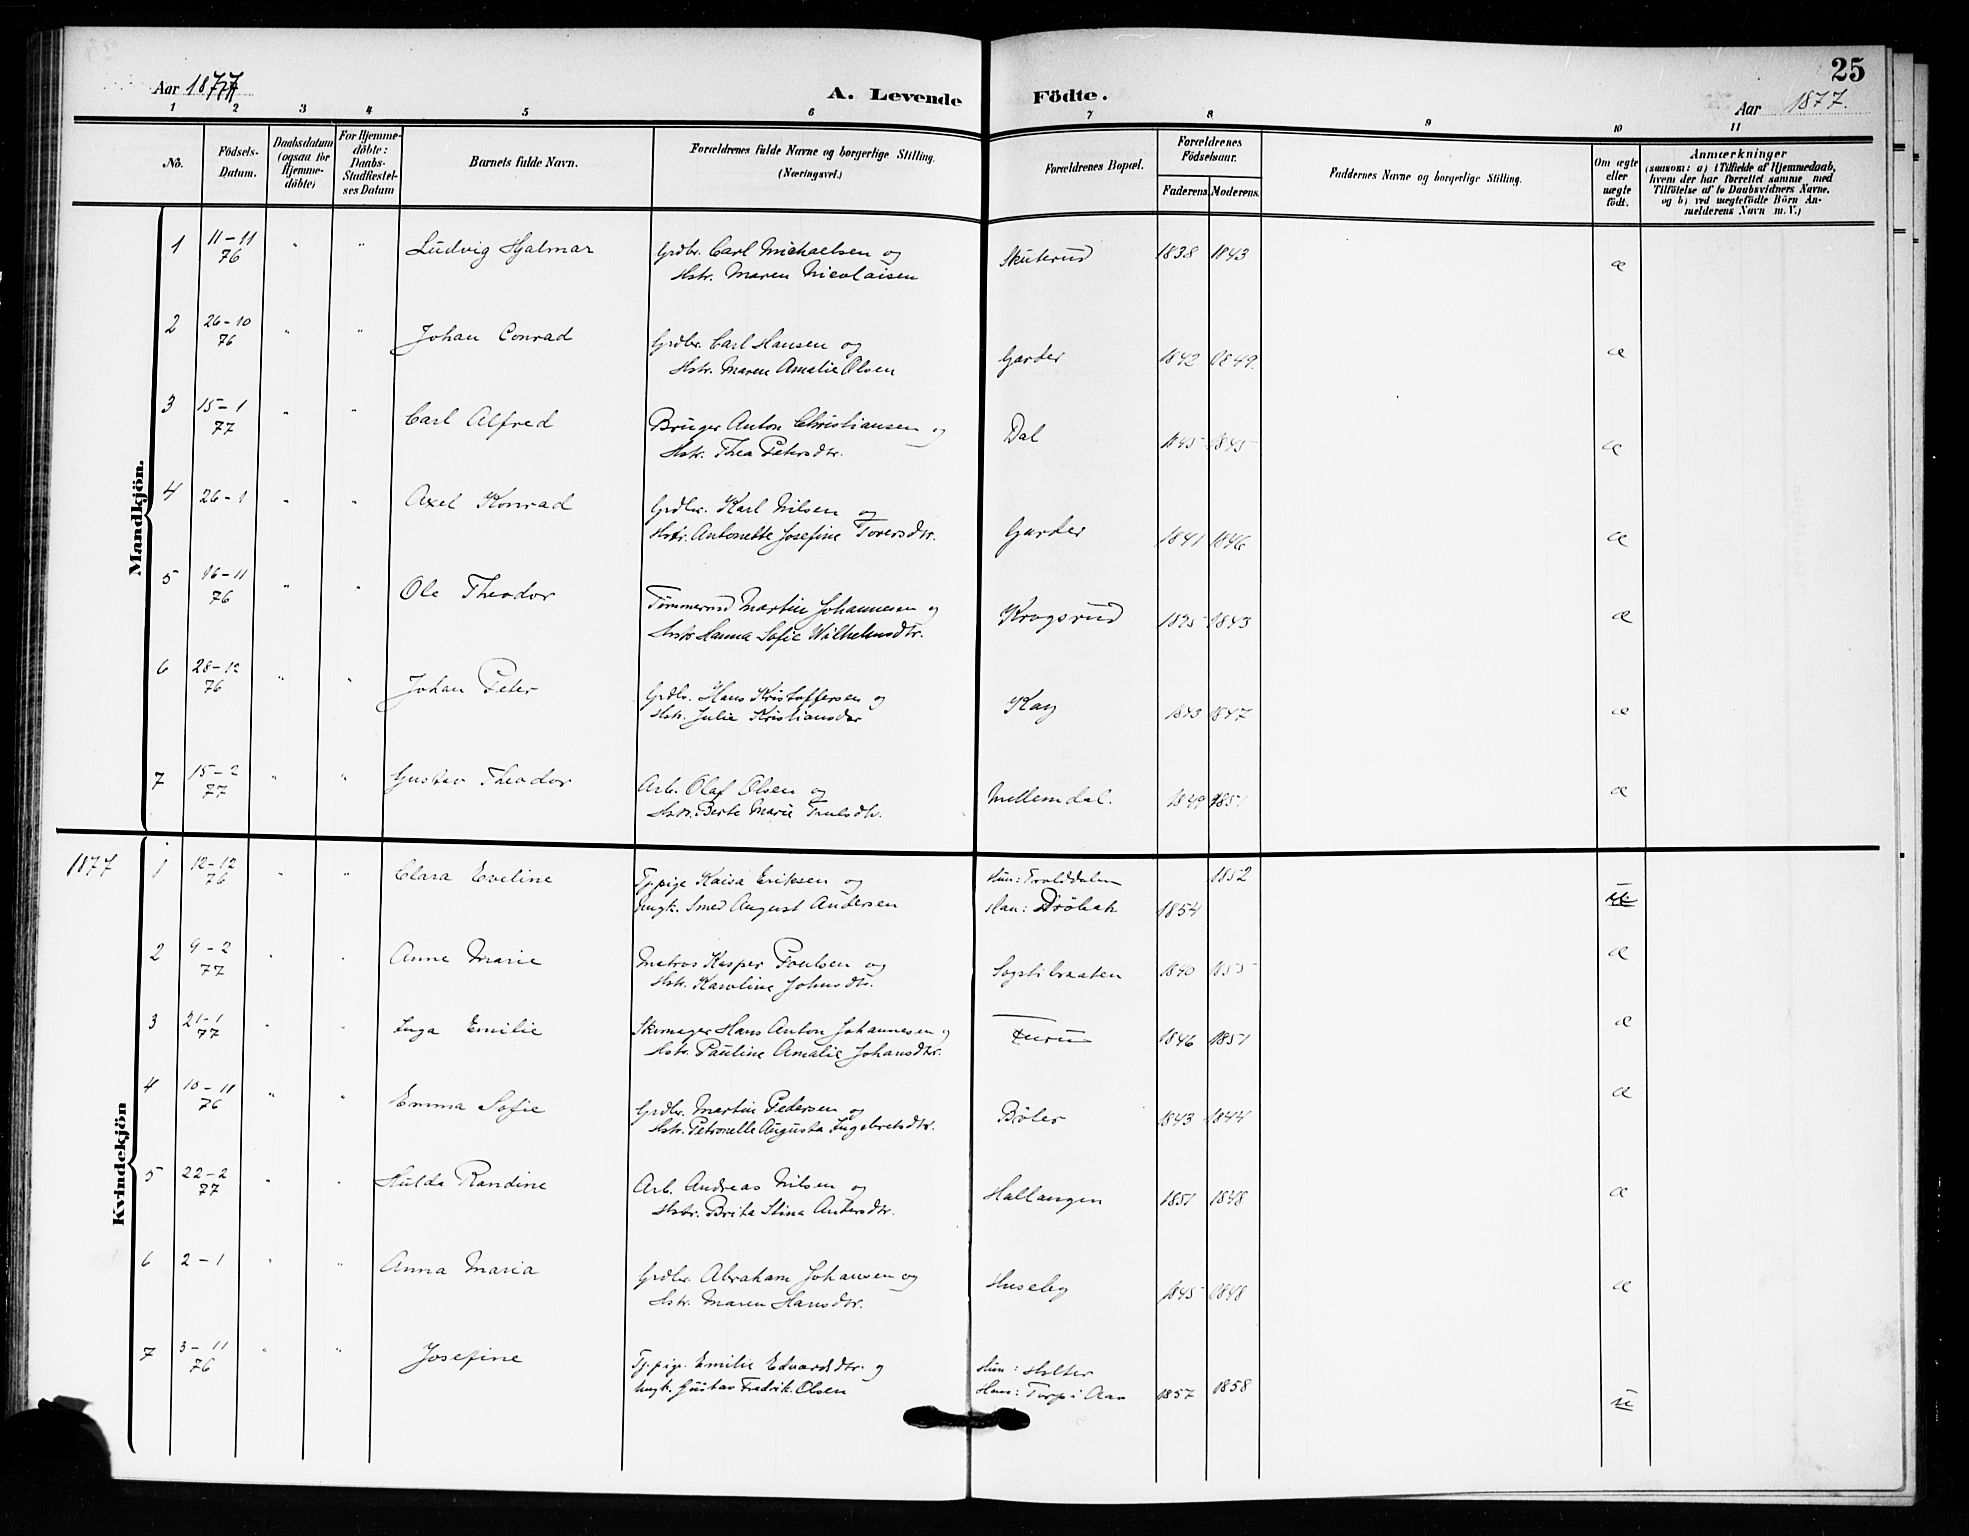 25
Aar 1877
A. Levende Födte.
Aar 1877.
1 2 3 4 5 6 7 8 9 10 11
No. Födsels-Datum. Daabsdatum (ogsaa for Hjemmedöbte) For Hjemmedöbte: Daabs-Stadfæstelses Datum Barnets fulde Navn. Forældrenes fulde Navne og borgerlige Stilling. (Næringsvei.) Forældrenes Bopæl. Forældrenes Födselsaar. Faderens Moderens Faddernes Navne og borgerlige Stilling. Om ægte eller uægte födt. Anmærkninger
(saasom: a) i Tilfælde af Hjemmedaab, hvem der har forrettet samme med Tilföielse af to Daabsvidners Navne, og b) ved uægtefödte Börn Anmelderens Navn m. V.)
Mandkjön.
1 11-11 76 " " Ludvig Hjalmar Grdbr. Carl Michaelsen og Skuterud 1838 1843 æ
Hstr. Maren Nicolaisen
2 26-10 76 " " Johan Conrad Grdbr. Carl Hansen og Garder 1842 1849. æ
Hstr. Maren Amalie Olsen
3 15-1 77 " " Carl Alfred Bruger Anton Christiansen og Dal 1845 1845 æ
Hstr. Thea Petersdtr.
4 26-1 " " Axel Konrad Grdbr. Karl Nilsen og Garder 1841 1846 æ
Hstr. Antonette Josefine Toversdtr.
5 16-11 76 " " Ole Theodor Tømmermd Martin Johannesen og Krogsrud 1843 æ
Hstr Hanna Sofie Wilhelmsdtr.
6 28-12 76 " " Johan Peter Grdbr. Hans Kristoffersen og Kay 1843 1847 æ
Hstr. Julie Kristiansdtr
7 15-2 77 " " Gustav Theodor Arb. Olaf Olsen og Mellemdal. 1849 1851 æ
Hstr. Berte Marie Trulsdtr.
1877
Kvindekjön
1 12-12 76 " " Clara Eveline Tj.pige Kaisa Eriksen og Hun: Trolddalen 1852
Ungk. Smed August Andersen Han: Drøbak 1854
2 9-2 77 " " Anne Marie Matros Kasper Poulsen og Sogstibraaten 1840 1855 æ
Hstr. Karoline Johnsdtr.
3 21-1 77 " " Inga Emilie Skomager Hans Anton Johannesen og Furu 1846 1851 æ
Hstr. Pauline Amalie Johansdtr.
4 10-11 76 " " Emma Sofie Grdbr. Martin Pedersen og Bøler 1843 1844 æ
Hstr. Petronelle Augusta Ingebretsdtr.
5 22-2 77 " " Hulda Randine Arb. Andreas Nilsen og Hallangen 1851 1848 æ
Hstr. Brita Stina Andersdtr.
6 2-1 " " Anna Maria Grdbr. Abraham Johansen og Huseby 1845 1848 æ
Hstr. Maren Hansdtr.
7 3-11 76 " " Josefine Tj.pige Emilie Edvardsdtr. og Hun: Holter 1858
Ungk. Gustav Fredrik Olsen Han: Torp i Aas 1857 u